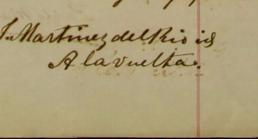 J. Martinez del Rio id
A la vuelta.